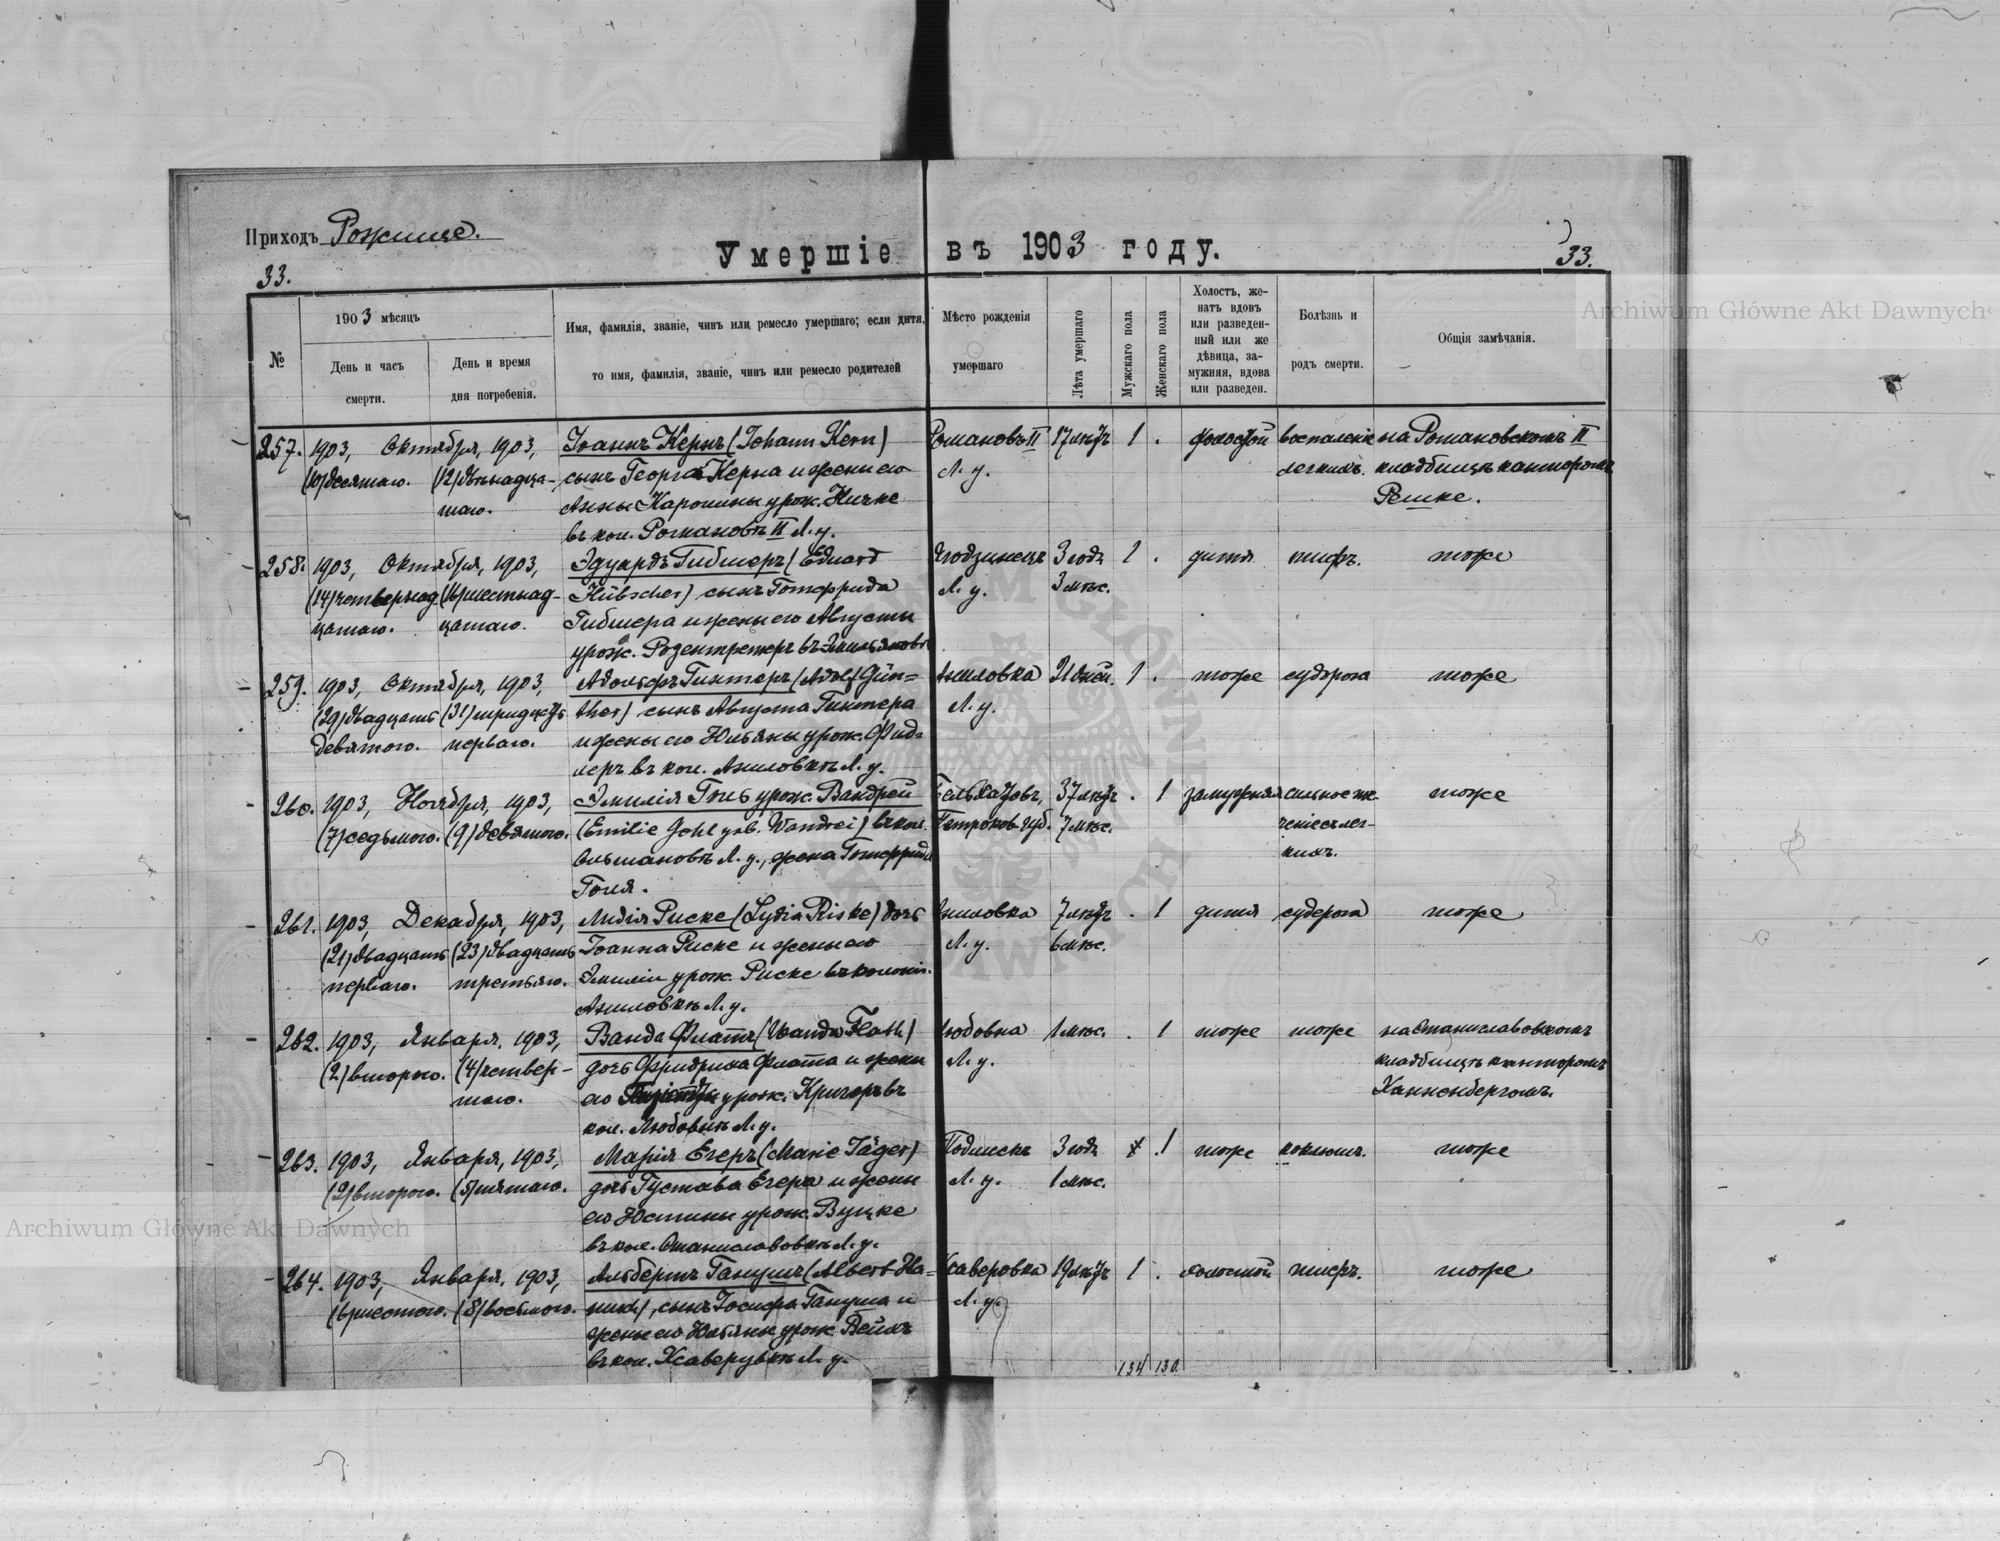 Приходъ Рожище.
Умершіе въ 1903 году.
33.
33.
№
1903 мѣсяцъ
День и часъ смерти.
День и время дня погребенія.
Имя, фамилія, званіе, чинъ или ремесло умершаго; если дитя,
то имя, фамилія, званіе, чинъ или ремесло родителей
Мѣсто рожденія
умершаго
Лѣта умершаго
Мужскаго пола
Женскаго пола
Холостъ, же-
натъ вдовъ
или разведен-
ный или же
дѣвица, за-
мужняя, вдова
или разведен.
Болѣзнь и
родъ смерти.
Общія замѣчанія.
257. 1903, Октября, 1903, Іоаннъ Кернъ (Johann Kern) Романовъ II 17 лѣтъ 1 . холостой воспаленіе на Романовскомъ II
(10) десятаго. (12) двѣнадца- сынъ Георга Керна и жены его Л. у. легкихъ. кладбищѣ канторомъ
таго. Анны Каролины урож. Ничке Решке.
въ кол. Романовѣ II Л. у.
258. 1903, Октября, 1903, Эдуардъ Гибшеръ (Eduard 3 года 1 . дитя тифъ. тоже
(14) четырнад (16) шестнад- Hübscher) сынъ Готфрида Л. у. 3 мѣс.
цатаго. цатаго. Гибшера и жены его Августы
урож. Розентретеръ въ
259. 1903, Октября, 1903, Адольфъ Гинтеръ (Adolf Gün= Аниловка 21 дней. 1 . тоже судорога тоже
(29) двадцать (31) тридцать ther) сынъ Августа Гинтера Л. у.
девятого. перваго. и жены его Юльяны урож. Фид=
леръ въ кол. Аниловкѣ Л. у.
260. 1903, Ноября, 1903, Эмилія Голь урож. Вандрей Бельхатовъ, 37 лѣтъ . 1 замужняя сильное тоже
(7) седьмого. (9) девятого. (Emilie Gohl geb. Wandrei) въ кол. Петроков. губ. 7 мѣс.
Ольгановѣ Л. у., жена Готфрида
Голя.
261. 1903, Декабря, 1903, Лидія Риске (Lydia Riske) дочь Аниловка 7 лѣтъ . 1 дитя судорога тоже
(21) двадцать (23) двадцать Іоанна Риске и жены его Л. у. 6 мѣс.
перваго. третьяго. Эмиліи урож. Риске въ колоніи
Аниловкѣ Л. у.
262. 1903, Января, 1903, Ванда Флатъ (Wanda Flath) Любовна 1 мѣс. . 1 тоже тоже на Станиславовскомъ
(2) второго. (4) четвер- дочь Фридриха Флата и жены Л. у. кладбищѣ канторомъ
таго. его урож. Кригеръ въ Ханненбергомъ.
кол. Любовнѣ Л. у.
263. 1903, Января, 1903, Марія Егеръ (Marie Jäger) 3 года . 1 тоже коклюшъ. тоже
(2) второго. (5) пятаго. дочь Густава Егера и жены Л. у. 1 мѣс.
его Юстины урож. Вуцке
въ кол. Станиславовкѣ Л. у.
264. 1903, Января, 1903, Альбертъ Ганушъ (Albert Ha= Ксаверовка 19 лѣтъ 1 . холостой тифъ. тоже
(6) шестого. (8) восьмого. сынъ Іосифа Гануша и Л. у.
жены его Юльяны урож. Вейхъ
въ кол. Ксаверувкѣ Л. у.
134 130.
Archiwum Główne Akt Dawnych
Archiwum Główne Akt Dawnych